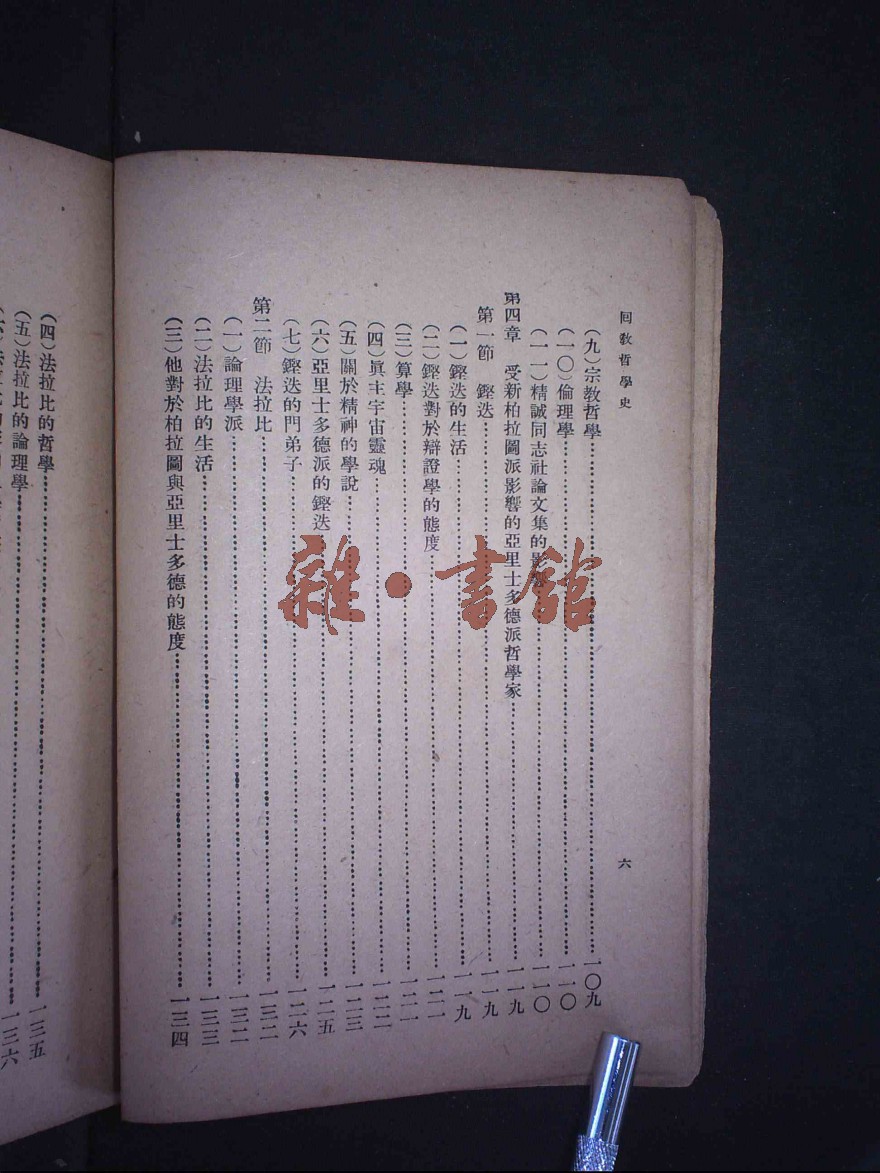 回教哲學史
六
(九)宗教哲學……一〇九
(一〇)倫理學……一一〇
(一一)精誠同志社論文集的影響……一一〇
第四章 受新柏拉圖派影響的亞里士多德派哲學家……一一九
第一節 鏗迭……一一九
(一)鏗迭的生活……一一九
(二)鏗迭對於辯證學的態度……一二一
(三)算學……一二一
(四)眞主宇宙靈魂……一二二
(五)關於精神的學說……一二三
(六)亞里士多德派的鏗迭……一二五
(七)鏗迭的門弟子……一二六
第二節 法拉比……一三二
(一)論理學派……一三二
(二)法拉比的生活……一三三
(三)他對於柏拉圖與亞里士多德的態度……一三四
(四)法拉比的哲學……一三五
(五)法拉比的論理學……一三六
雜·書館